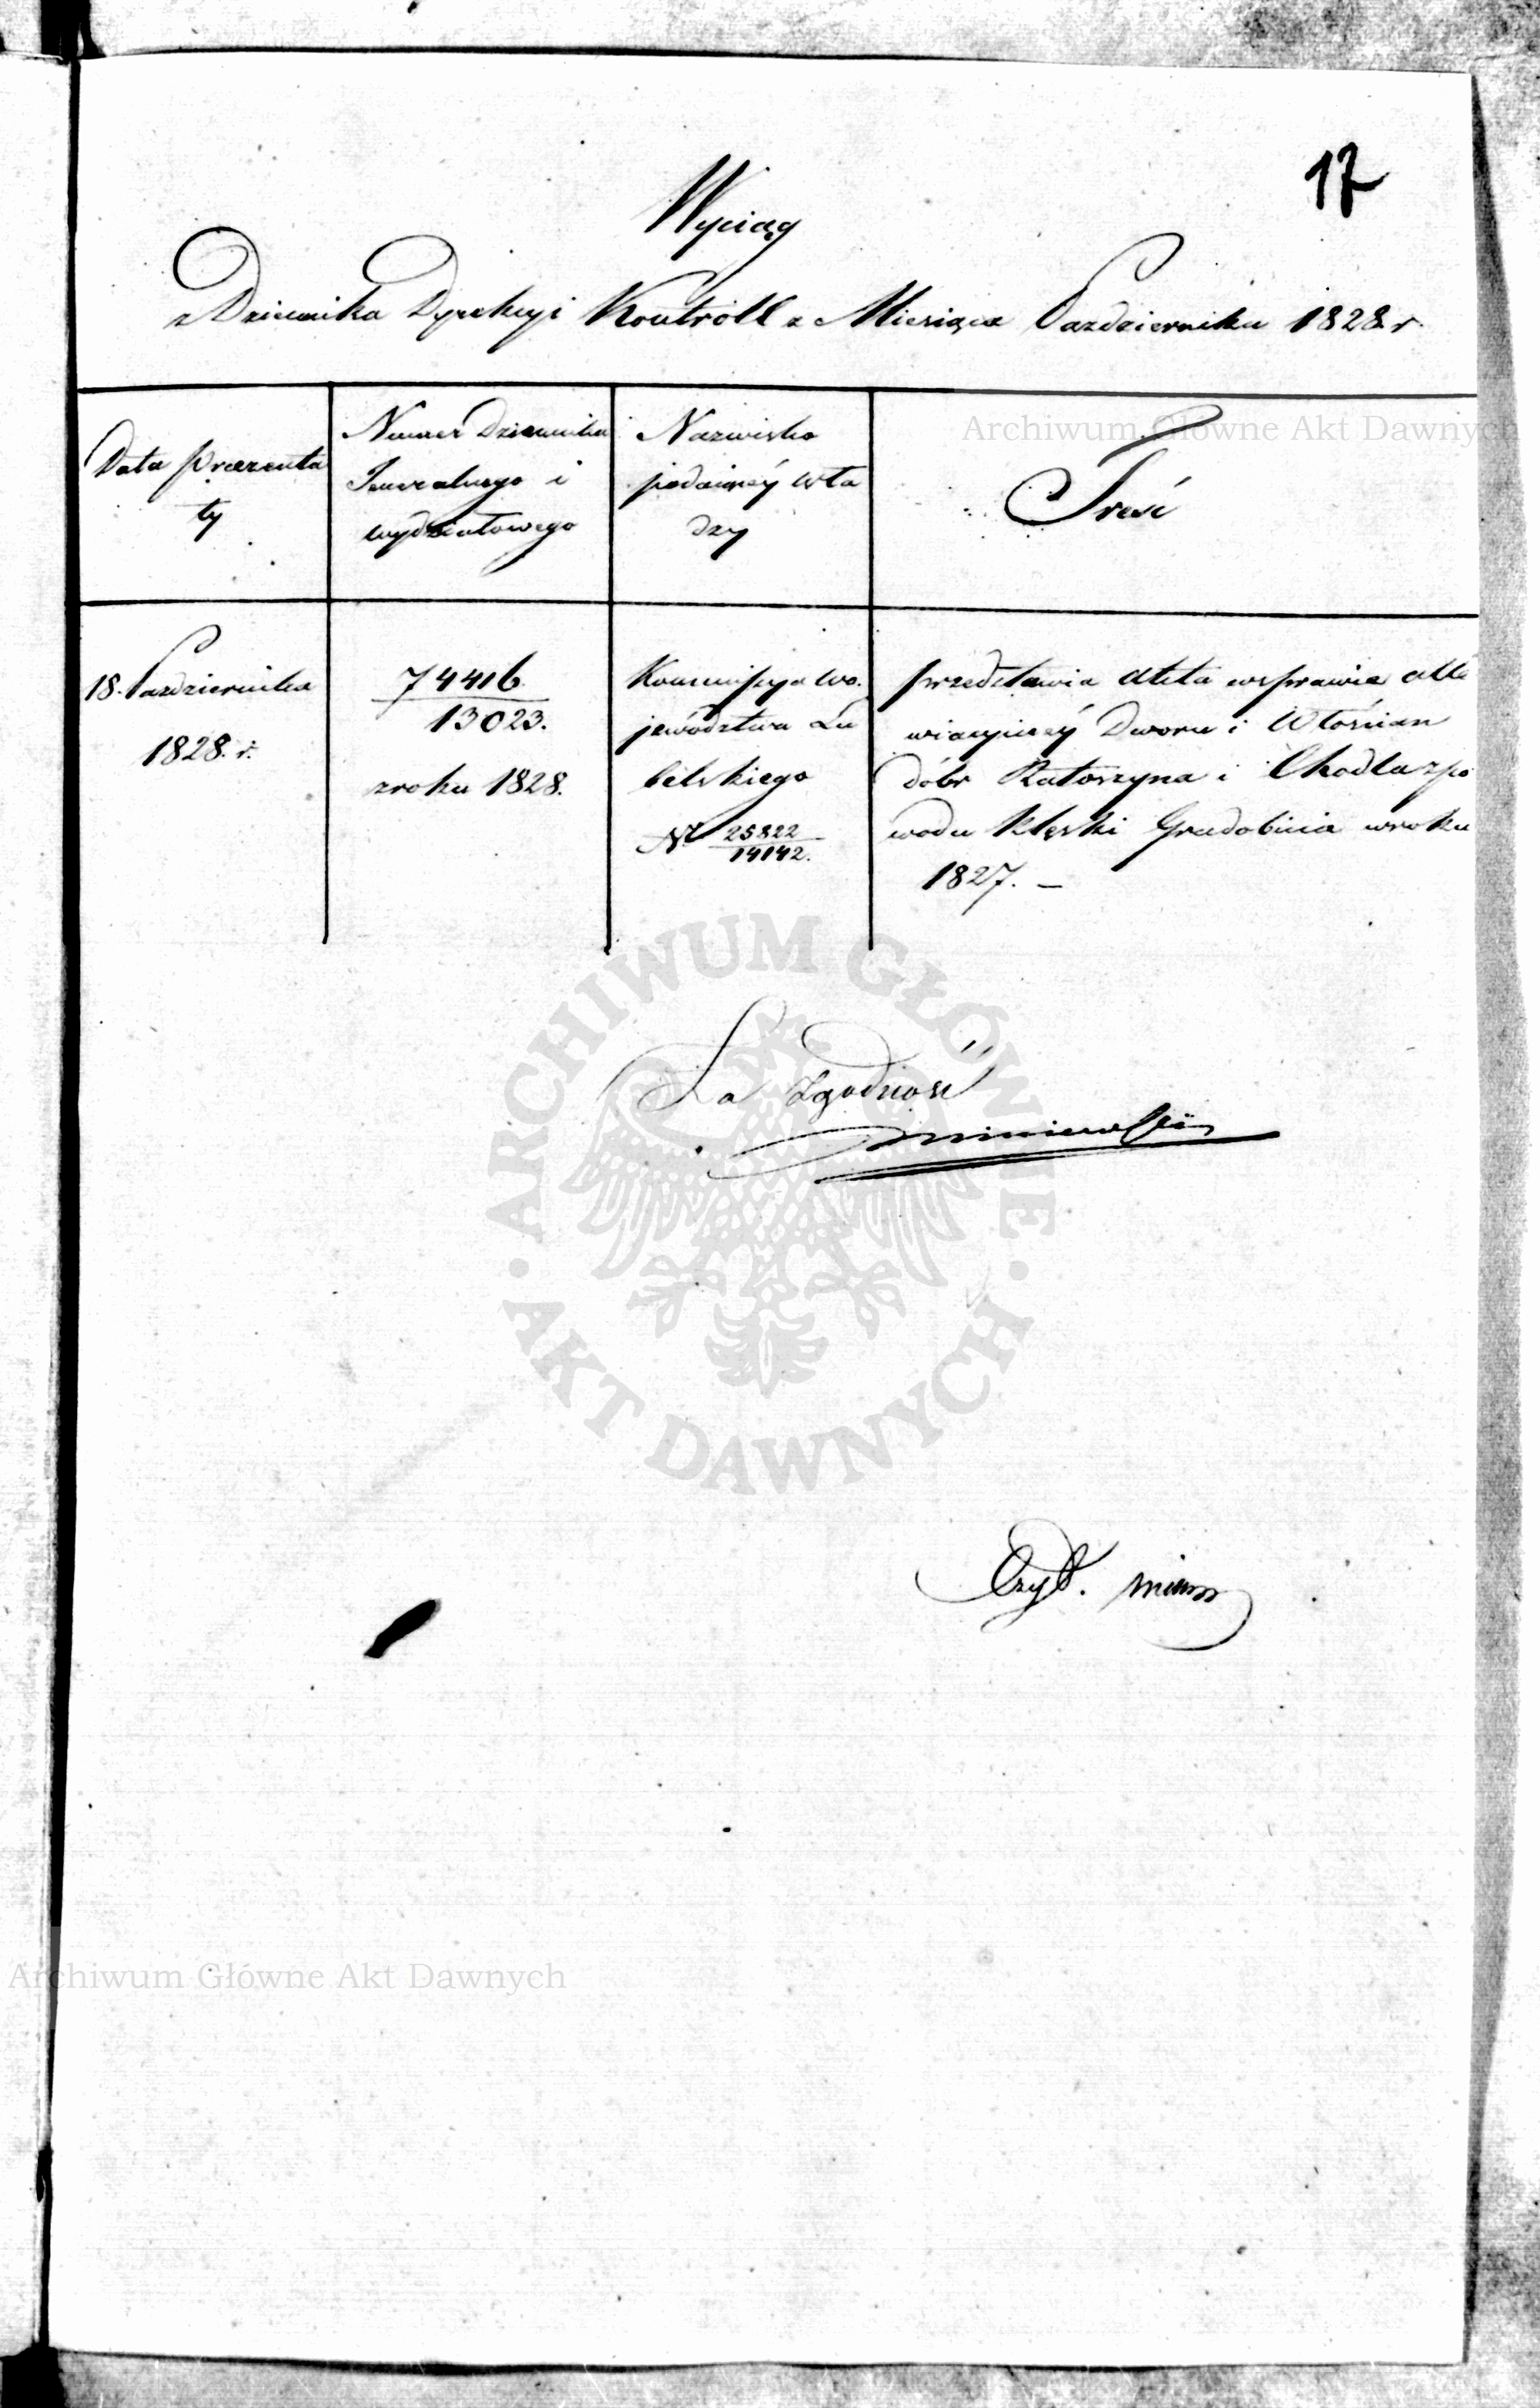 17
Wyciąg
z Dziennika Dyrekcyi Kontroll z Miesiąca Października 1828 r.
Data prezenta
ty
Numer Dziennika
Generalnego i
wydziałowego
Nazwisko
podaiącéy wła
dzy
Treść
18. Października
1828. r.
74416
13023.
z roku 1828.
Kommissya Wo.
jewództwa Lu
belskiego
Nr 25822
14142.
przedstawia Akta w sprawie alle
wiacyinéy Dworu i Włościan
dóbr Ratoszyna i Chodla z po
wodu klęski Gradobicia w roku
1827. –
Za Zgodność
Archiwum Główne Akt Dawnych
ARCHIWUM GŁÓWNE AKT DAWNYCH
Archiwum Główne Akt Dawnych